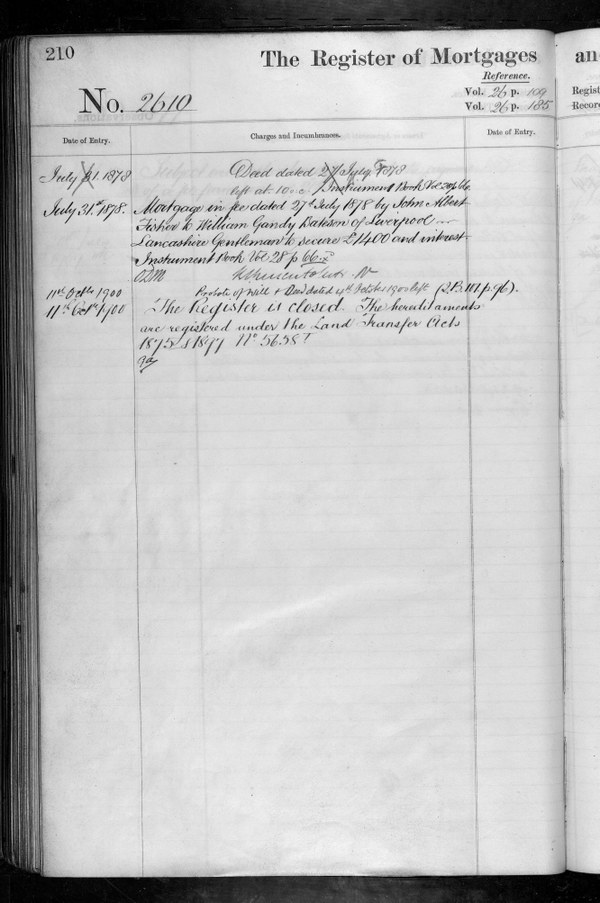 210
The Register of Mortgages
an
Reference.
No. 2610
Vol. 26 p. 109
Regist
Vol. 26 p. 185
Record
Date of Entry.
Charges and Incumbrances.
Date of Entry.
July 31. 1878
Deed dated 27 July 1878
left at 10 Instrument Book Vol 28 p 66
July 31st 1878.
Mortgage in fee dated 27th July 1878 by John Albert
Fisher to William Gandy Bateson of Liverpool
Lancashire Gentleman to secure £1400 and interest
Instrument Book Vol 28 p 66
11th Octbr 1900
Probate of Will & Deed dated October 1900 left (I.B. 101 p. 96).
11th Octbr 1900
The Register is closed. The hereditaments
are registered under the Land Transfer Acts
1875 & 1897 No 5658